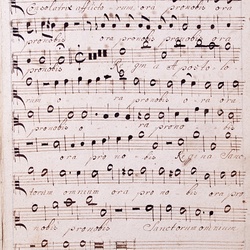 Consolatrix afflicto - rum, ora pronobis ora
pronobis ora pronobis ora
pronobis Regina apostolo
rum ora pronobis ora
pronobis ora pronobis
ora pro no - bis Regina Sanc
torum omnium ora pro no - bis ora pro
nobis pronobis Sanctorum omnium